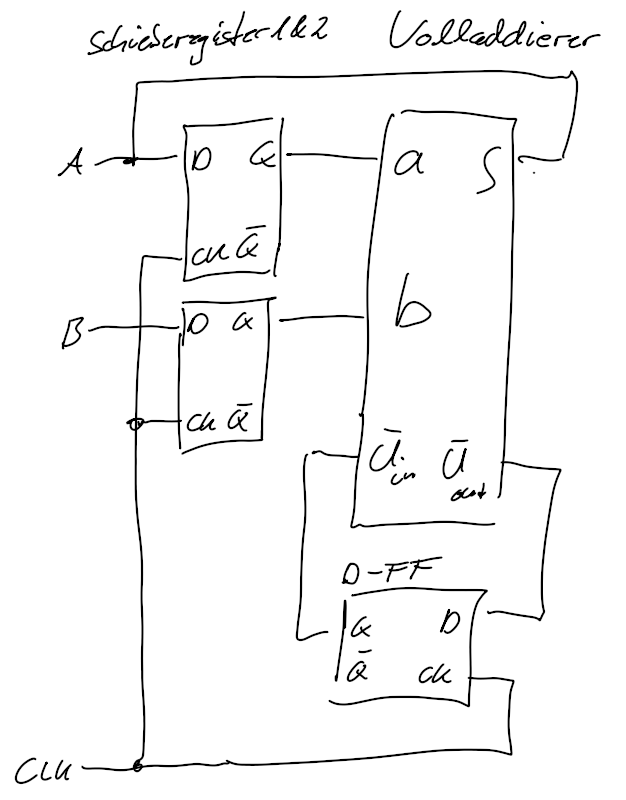 Schieberegister 1&2 Volladdierer
A D Q a S
CK Q̅
B D Q b
CK Q̅ U̅in U̅out
D-FF
Q D
Q̅ CK
CLK